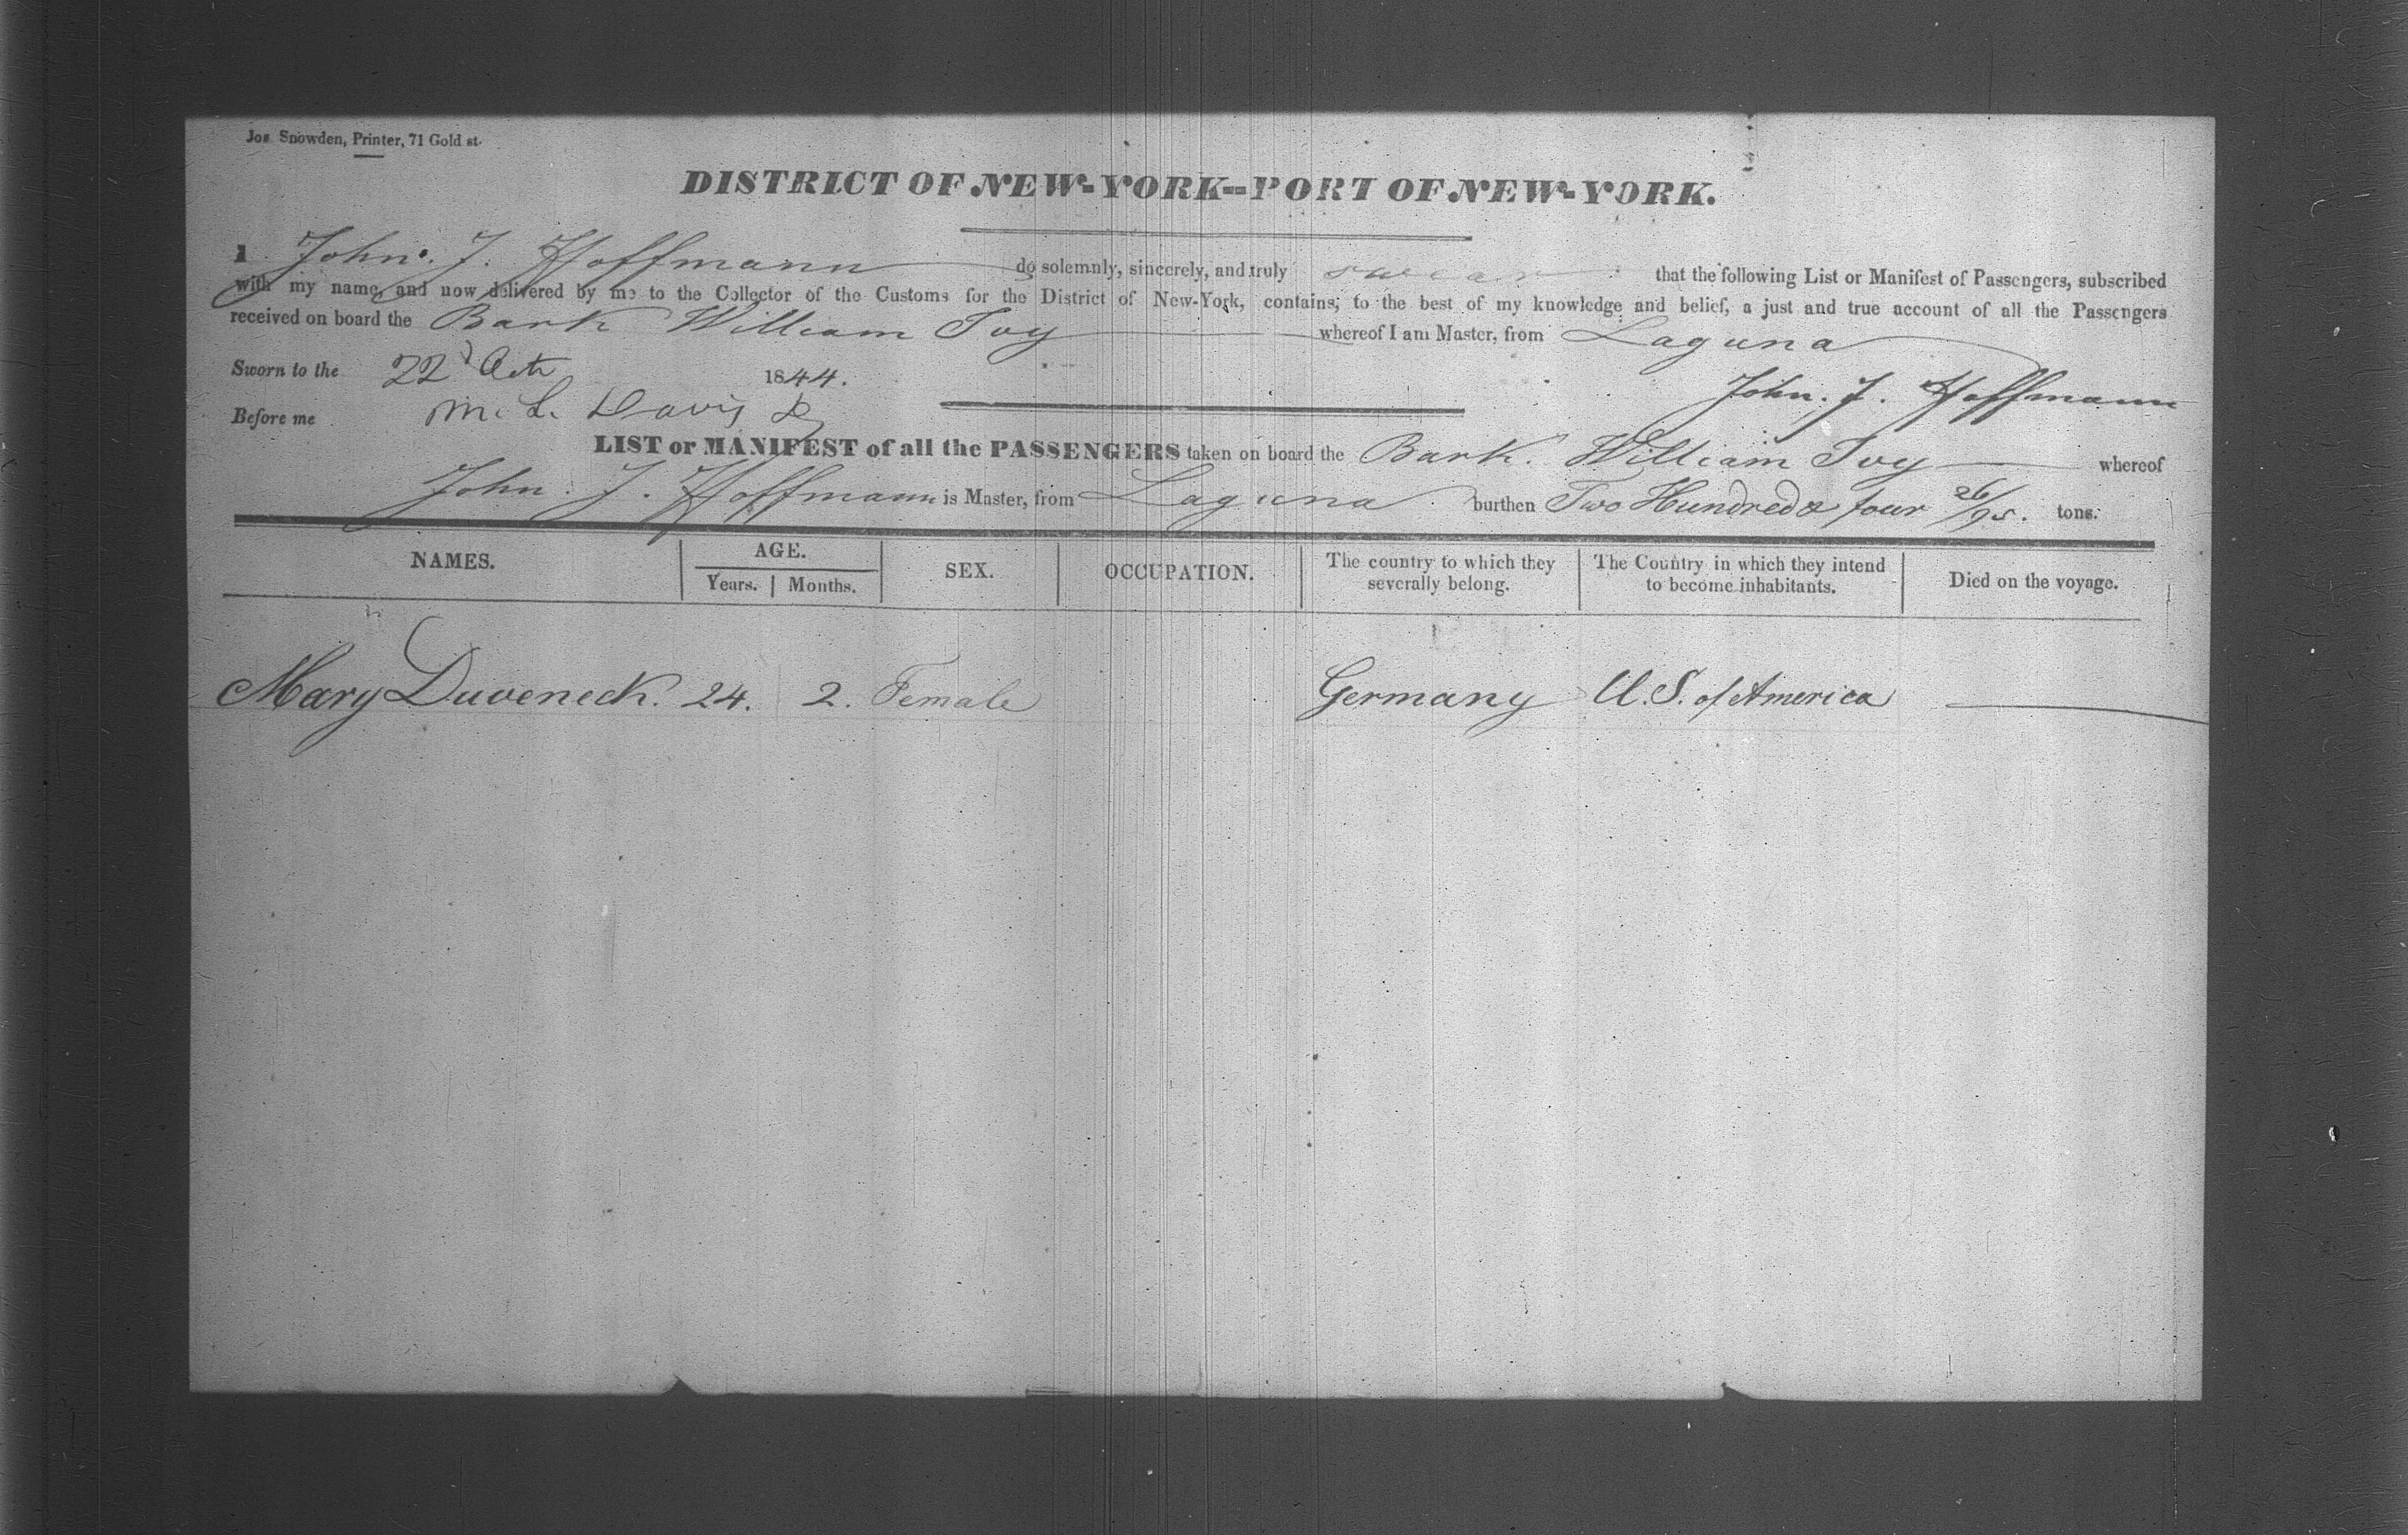 Jos. Snowden, Printer, 71 Gold st.
DISTRICT OF NEW-YORK--PORT OF NEW-YORK.
I John. J. Hoffmann do solemnly, sincerely, and truly swear that the following List or Manifest of Passengers, subscribed
with my name, and now delivered by me to the Collector of the Customs for the District of New-York, contains, to the best of my knowledge and belief, a just and true account of all the Passengers
received on board the Bark William Ivy whereof I am Master, from Laguna
Sworn to the 22d Octr 1844.
John. J. Hoffmann
Before me M. L. Davis
LIST or MANIFEST of all the PASSENGERS taken on board the Bark. William Ivy whereof
John. J. Hoffmann is Master, from Laguna burthen Two Hundred & four 26/95. tons.
NAMES. AGE. SEX. OCCUPATION. The country to which they severally belong. The Country in which they intend to become inhabitants. Died on the voyage.
Years. Months.
Mary Duveneck. 24. 2. Female Germany U.S. of America